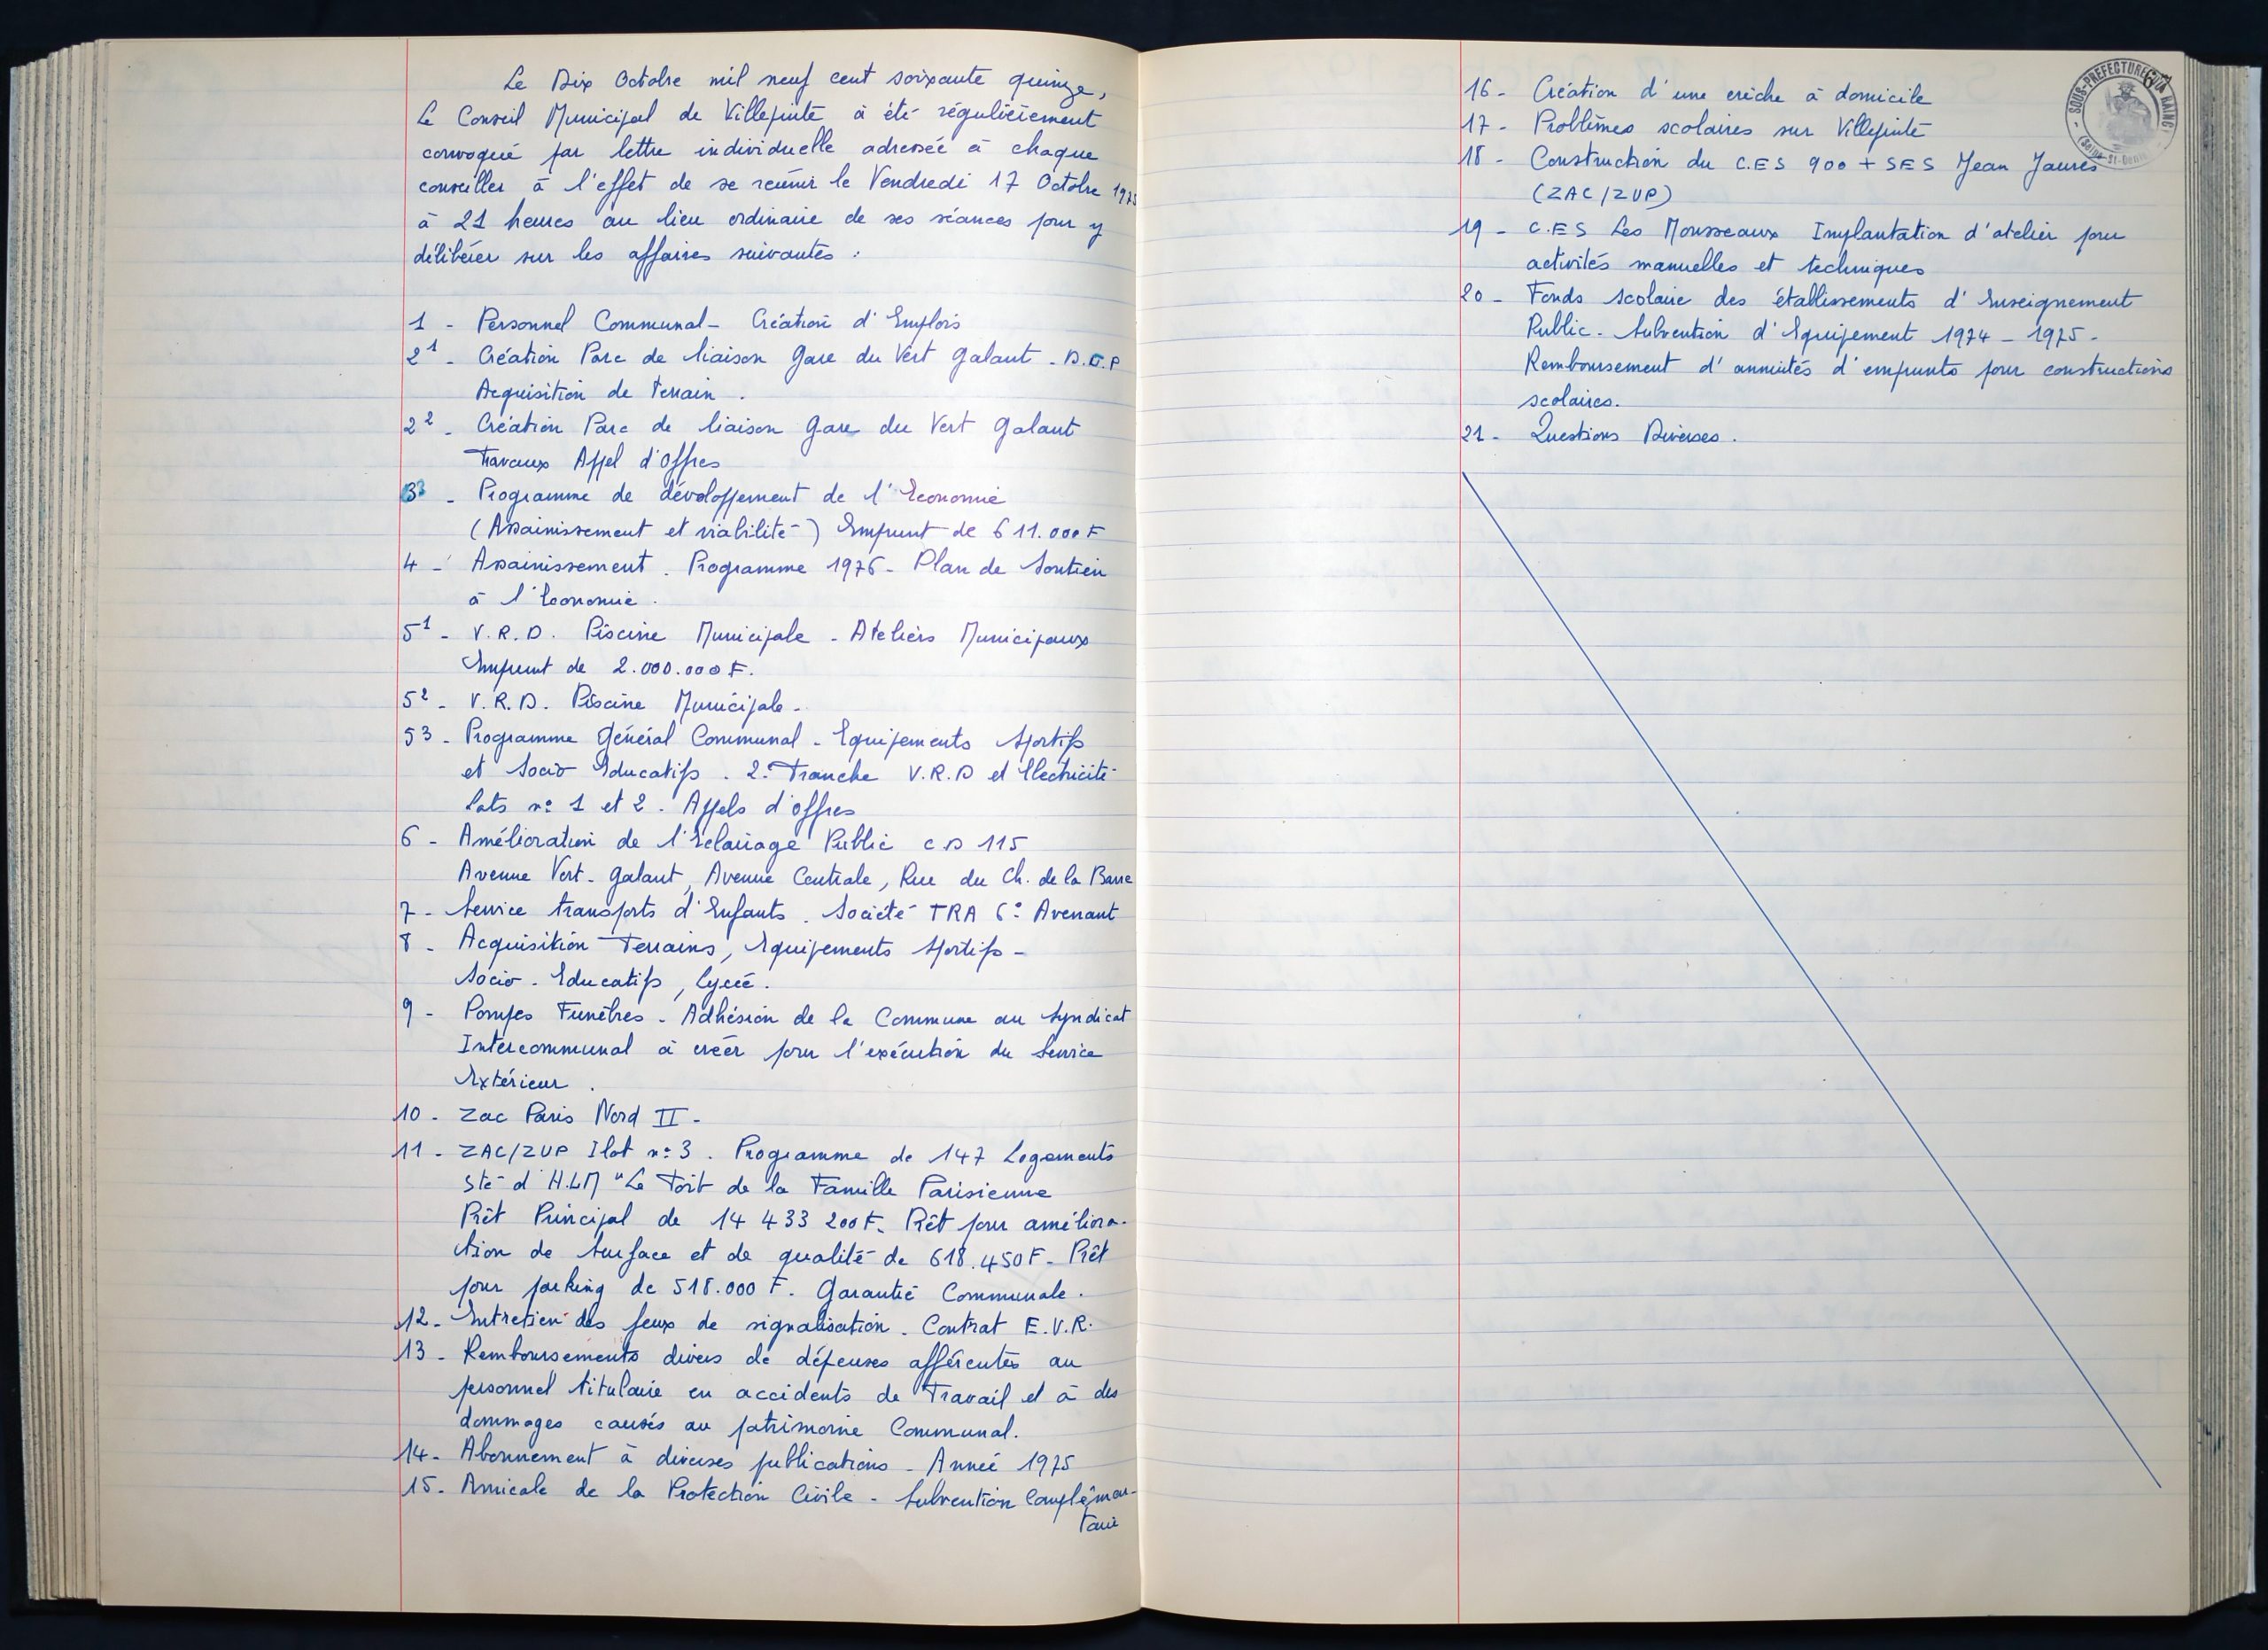 Le Dix Octobre mil neuf cent soixante quinze,
Le Conseil Municipal de Villepinte à été régulièrement
convoqué par lettre individuelle adressée à chaque
conseiller à l'effet de se réunir le Vendredi 17 Octobre 1975
à 21 heures au lieu ordinaire de ses séances pour y
délibérer sur les affaires suivantes :
1 - Personnel Communal - Création d'Emplois
2¹ - Création Parc de liaison Gare du Vert Galant - D.C.P
Acquisition de Terrain .
2² - Création Parc de liaison Gare du Vert Galant
Travaux Appel d'Offres
3 - Programme de développement de l'Economie
(Assainissement et viabilité) Emprunt de 611.000 F
4 - Assainissement . Programme 1976 - Plan de Soutien
à l'Economie .
5¹ - V.R.D. Piscine Municipale - Ateliers Municipaux
Emprunt de 2.000.000 F.
5² - V.R.D. Piscine Municipale -
5³ - Programme Général Communal - Equipements Sportifs
et Socio Educatifs . 2° Tranche V.R.D et Electricité
Lots n° 1 et 2 . Appels d'offres
6 - Amélioration de l'Eclairage Public CD 115
Avenue Vert-Galant, Avenue Centrale, Rue du Ch. de la Barre
7 - Service transports d'Enfants . Société TRA 6° Avenant
8 - Acquisition Terrains, Equipements Sportifs -
Socio-Educatifs, Lycée .
9 - Pompes Funèbres - Adhésion de la Commune au Syndicat
Intercommunal à créer pour l'exécution du Service
Extérieur .
10 - Zac Paris Nord II -
11 - ZAC/ZUP Ilot n° 3 . Programme de 147 Logements
Sté d'H.LM "Le Toit de la Famille Parisienne
Prêt Principal de 14 433 200 F. Prêt pour améliora-
tion de Surface et de qualité de 618.450 F - Prêt
pour parking de 518.000 F. Garantie Communale .
12 - Entretien des feux de signalisation . Contrat E.V.R.
13 - Remboursements divers de dépenses afférentes au
personnel titulaire en accidents de Travail et à des
dommages causés au patrimoine Communal.
14 - Abonnement à diverses publications - Année 1975
15. Amicale de la Protection Civile - Subvention Complémen-
taire
16 - Création d'une crèche à domicile
17 - Problèmes scolaires sur Villepinte
18 - Construction du C.ES 900 + SES Jean Jaurès
(ZAC/ZUP)
19 - C.ES Les Mousseaux Implantation d'atelier pour
activités manuelles et techniques
20 - Fonds Scolaire des établissements d'Enseignement
Public - Subvention d'Equipement 1974 - 1975 -
Remboursement d'annuités d'emprunts pour constructions
scolaires.
21 - Questions Diverses .
SOUS-PREFECTURE DU RAINCY
(Seine-St-Denis)